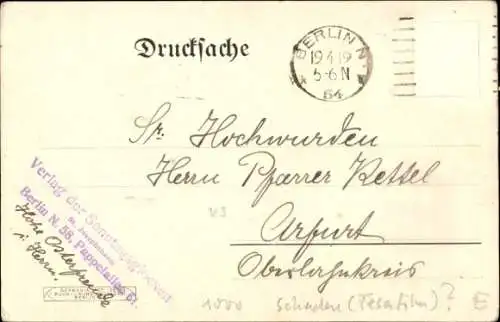 Drucksache
BERLIN N
19.4.19
5-6 N
54
Sr. Hochwürden
Herrn Pfarrer Kettel
Arfurt
Oberlahnkreis
Verlag der
Berlin N. 58, Pappelallee
Hohe Osterfreude
i. Herrn.
BERLIN
1000 Schaden (Tesafilm)? E